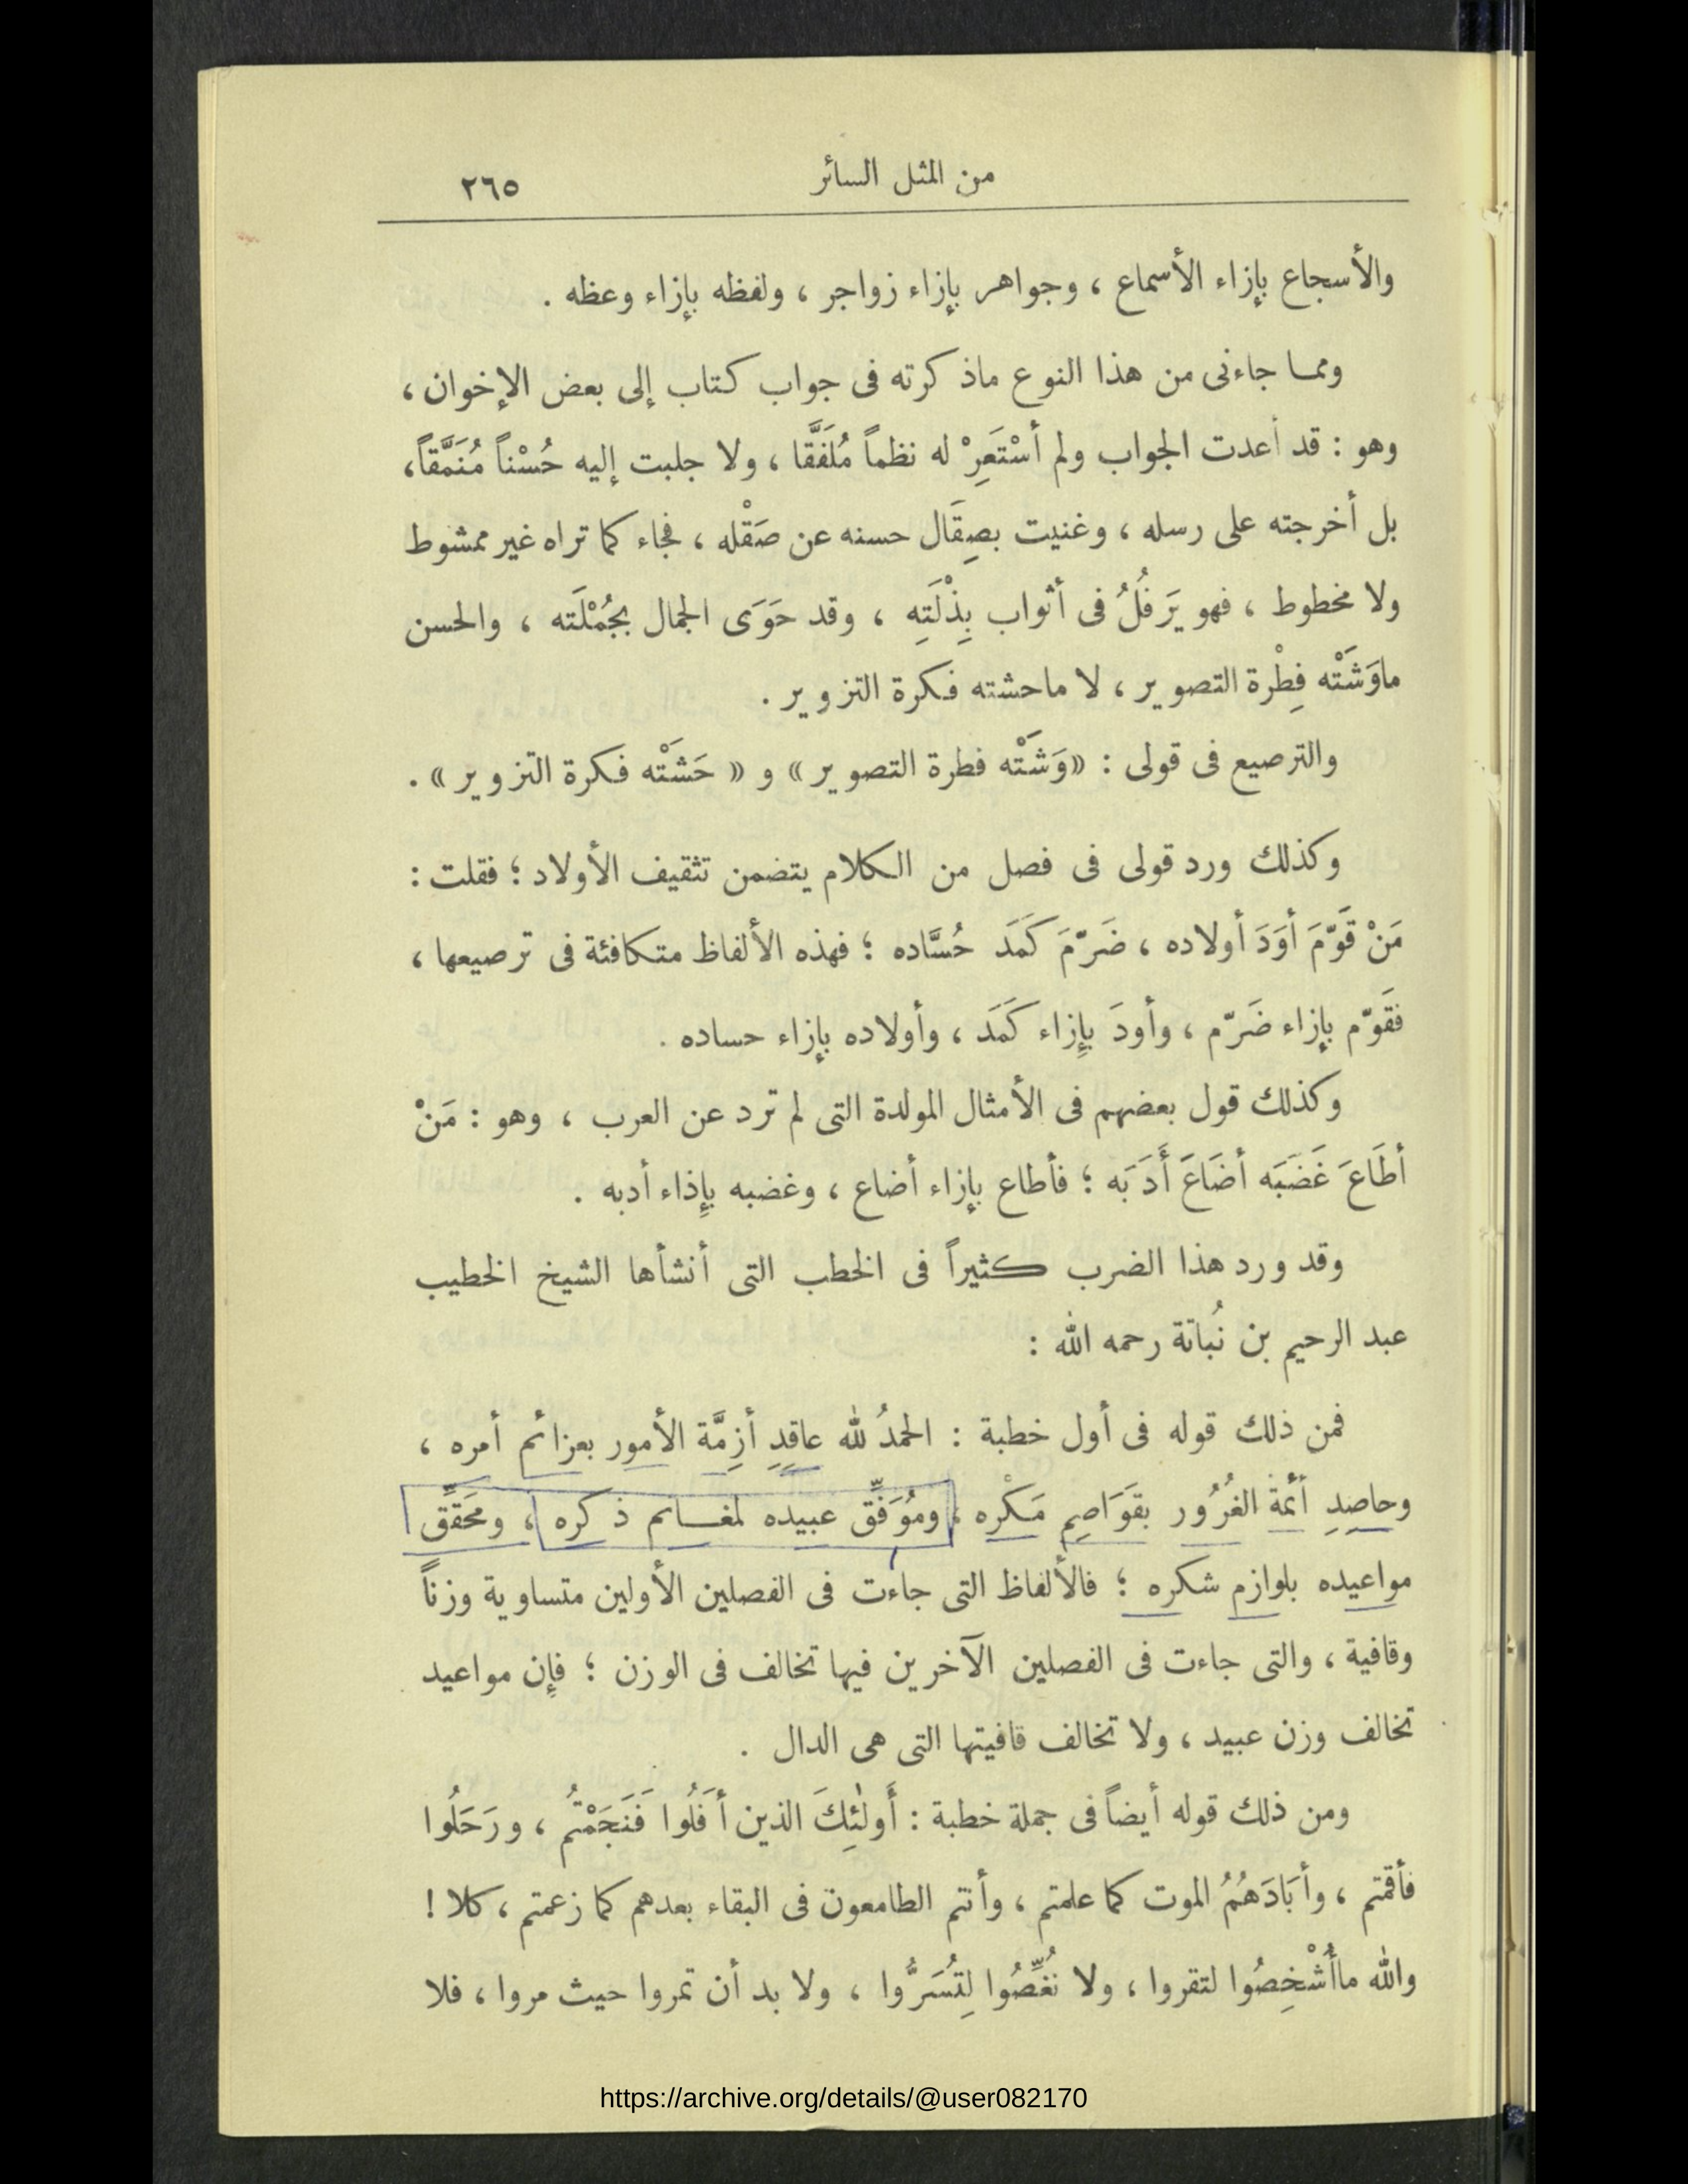 من المثل السائر ٢٦٥
والأسجاع بإزاء الأسماع ، وجواهر بإزاء زواجر ، ولفظه بإزاء وعظه .
ومما جاءنى من هذا النوع ماذكرته فى جواب كتاب إلى بعض الإخوان ،
وهو : قد أعدت الجواب ولم أسْتَعِرْ له نظماً مُلَفَّقا ، ولا جلبت إليه حُسْناً مُنَمَّقاً ،
بل أخرجته على رسله ، وغنيت بصِقَال حسنه عن صَقْله ، فجاء كما تراه غير ممشوط
ولا مخطوط ، فهو يَرفُلُ فى أثواب بِذْلَتِهِ ، وقد حَوَى الجمال بجُمْلَته ، والحسن
ماوَشَتْه فِطْرة التصوير ، لا ماحشته فكرة التزوير .
والترصيع فى قولى : «وَشَتْه فطرة التصوير» و « حَشَتْه فكرة التزوير» .
وكذلك ورد قولى فى فصل من الكلام يتضمن تثقيف الأولاد ؛ فقلت :
مَنْ قَوّمَ أوَدَ أولاده ، ضَرّمَ كَمَدَ حُسَّاده ؛ فهذه الألفاظ متكافئة فى ترصيعها ،
فقَوّم بإزاء ضَرّم ، وأودَ بإِزاء كَمَدَ ، وأولاده بإزاء حساده .
وكذلك قول بعضهم فى الأمثال المولدة التى لم ترد عن العرب ، وهو : مَنْ
أطَاعَ غَضَبَه أضَاعَ أَدَبَه ؛ فأطاع بإزاء أضاع ، وغضبه بإِذاء أدبه .
وقد ورد هذا الضرب كثيراً فى الخطب التى أنشأها الشيخ الخطيب
عبد الرحيم بن نُباتة رحمه الله :
فمن ذلك قوله فى أول خطبة : الحمدُ لله عاقِدِ أزِمَّة الأمور بعزائم أمره ،
وحاصِدِ أئمة الغُرُور بقَوَاصِمِ مَكْره ، ومُوَفِّق عبيده لمغانم ذكره ، ومحَقِّق
مواعيده بلوازم شكره ؛ فالألفاظ التى جاءت فى الفصلين الأولين متساوية وزناً
وقافية ، والتى جاءت فى الفصلين الآخرين فيها تخالف فى الوزن ؛ فإِن مواعيد
تخالف وزن عبيد ، ولا تخالف قافيتها التى هى الدال .
ومن ذلك قوله أيضاً فى جملة خطبة : أَولٰئِكَ الذين أفَلُوا فَنَجَمْتُم ، ورَحَلُوا
فأقمتم ، وأبَادَهُمُ الموت كما علمتم ، وأنتم الطامعون فى البقاء بعدهم كما زعمتم ، كلا !
والله ماأُشْخِصُوا لتقروا ، ولا نُغِّصُوا لِتُسَرُّوا ، ولا بد أن تمروا حيث مروا ، فلا
https://archive.org/details/@user082170